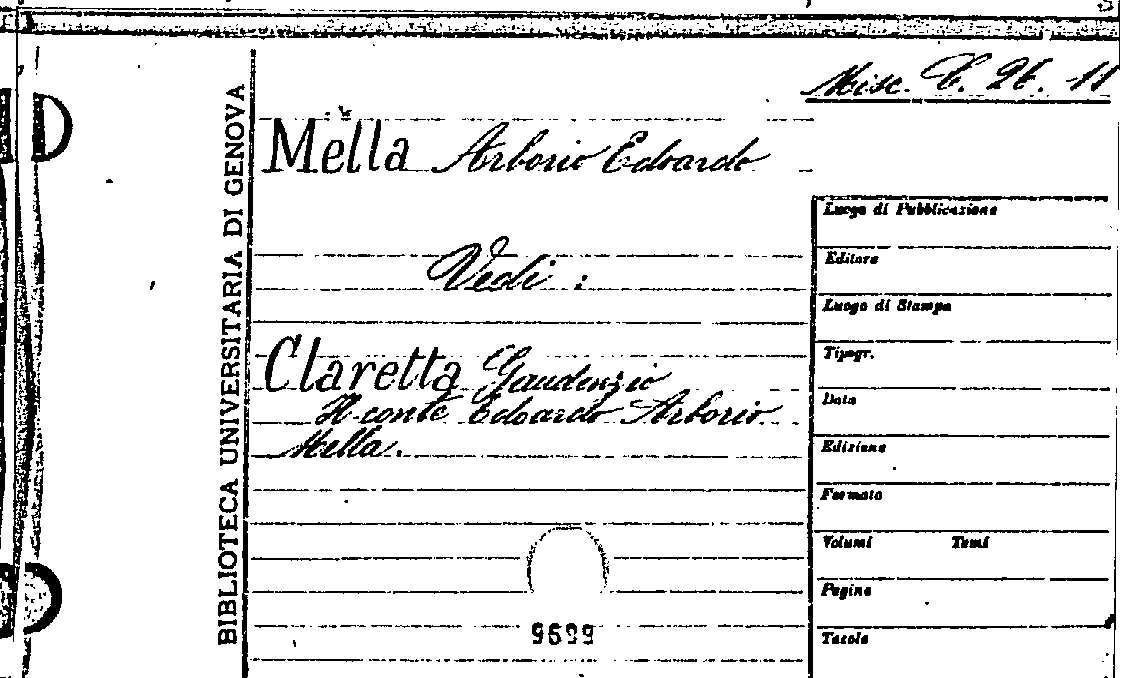 Misc. C. 26. 11
BIBLIOTECA UNIVERSITARIA DI GENOVA
Mella Arborio Edoardo
Vedi :
Claretta Gaudenzio
Il conte Edoardo Arborio
Mella.
9699
Luogo di Pubblicazione
Editore
Luogo di Stampa
Tipogr.
Data
Edizione
Formato
Volumi Tomi
Pagine
Tavole